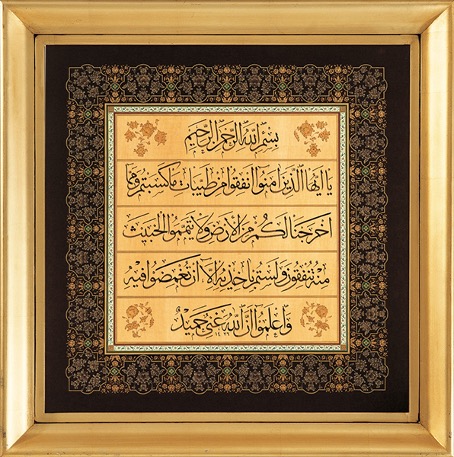 بسم الله الرحمن الرحيم
يا ايها الذين امنوا انفقوا من طيبات ما كسبتم ومما
اخرجنا لكم من الارض ولا تيمموا الخبيث
منه تنفقون ولستم باخذيه الا ان تغمضوا فيه
واعلموا ان الله غني حميد